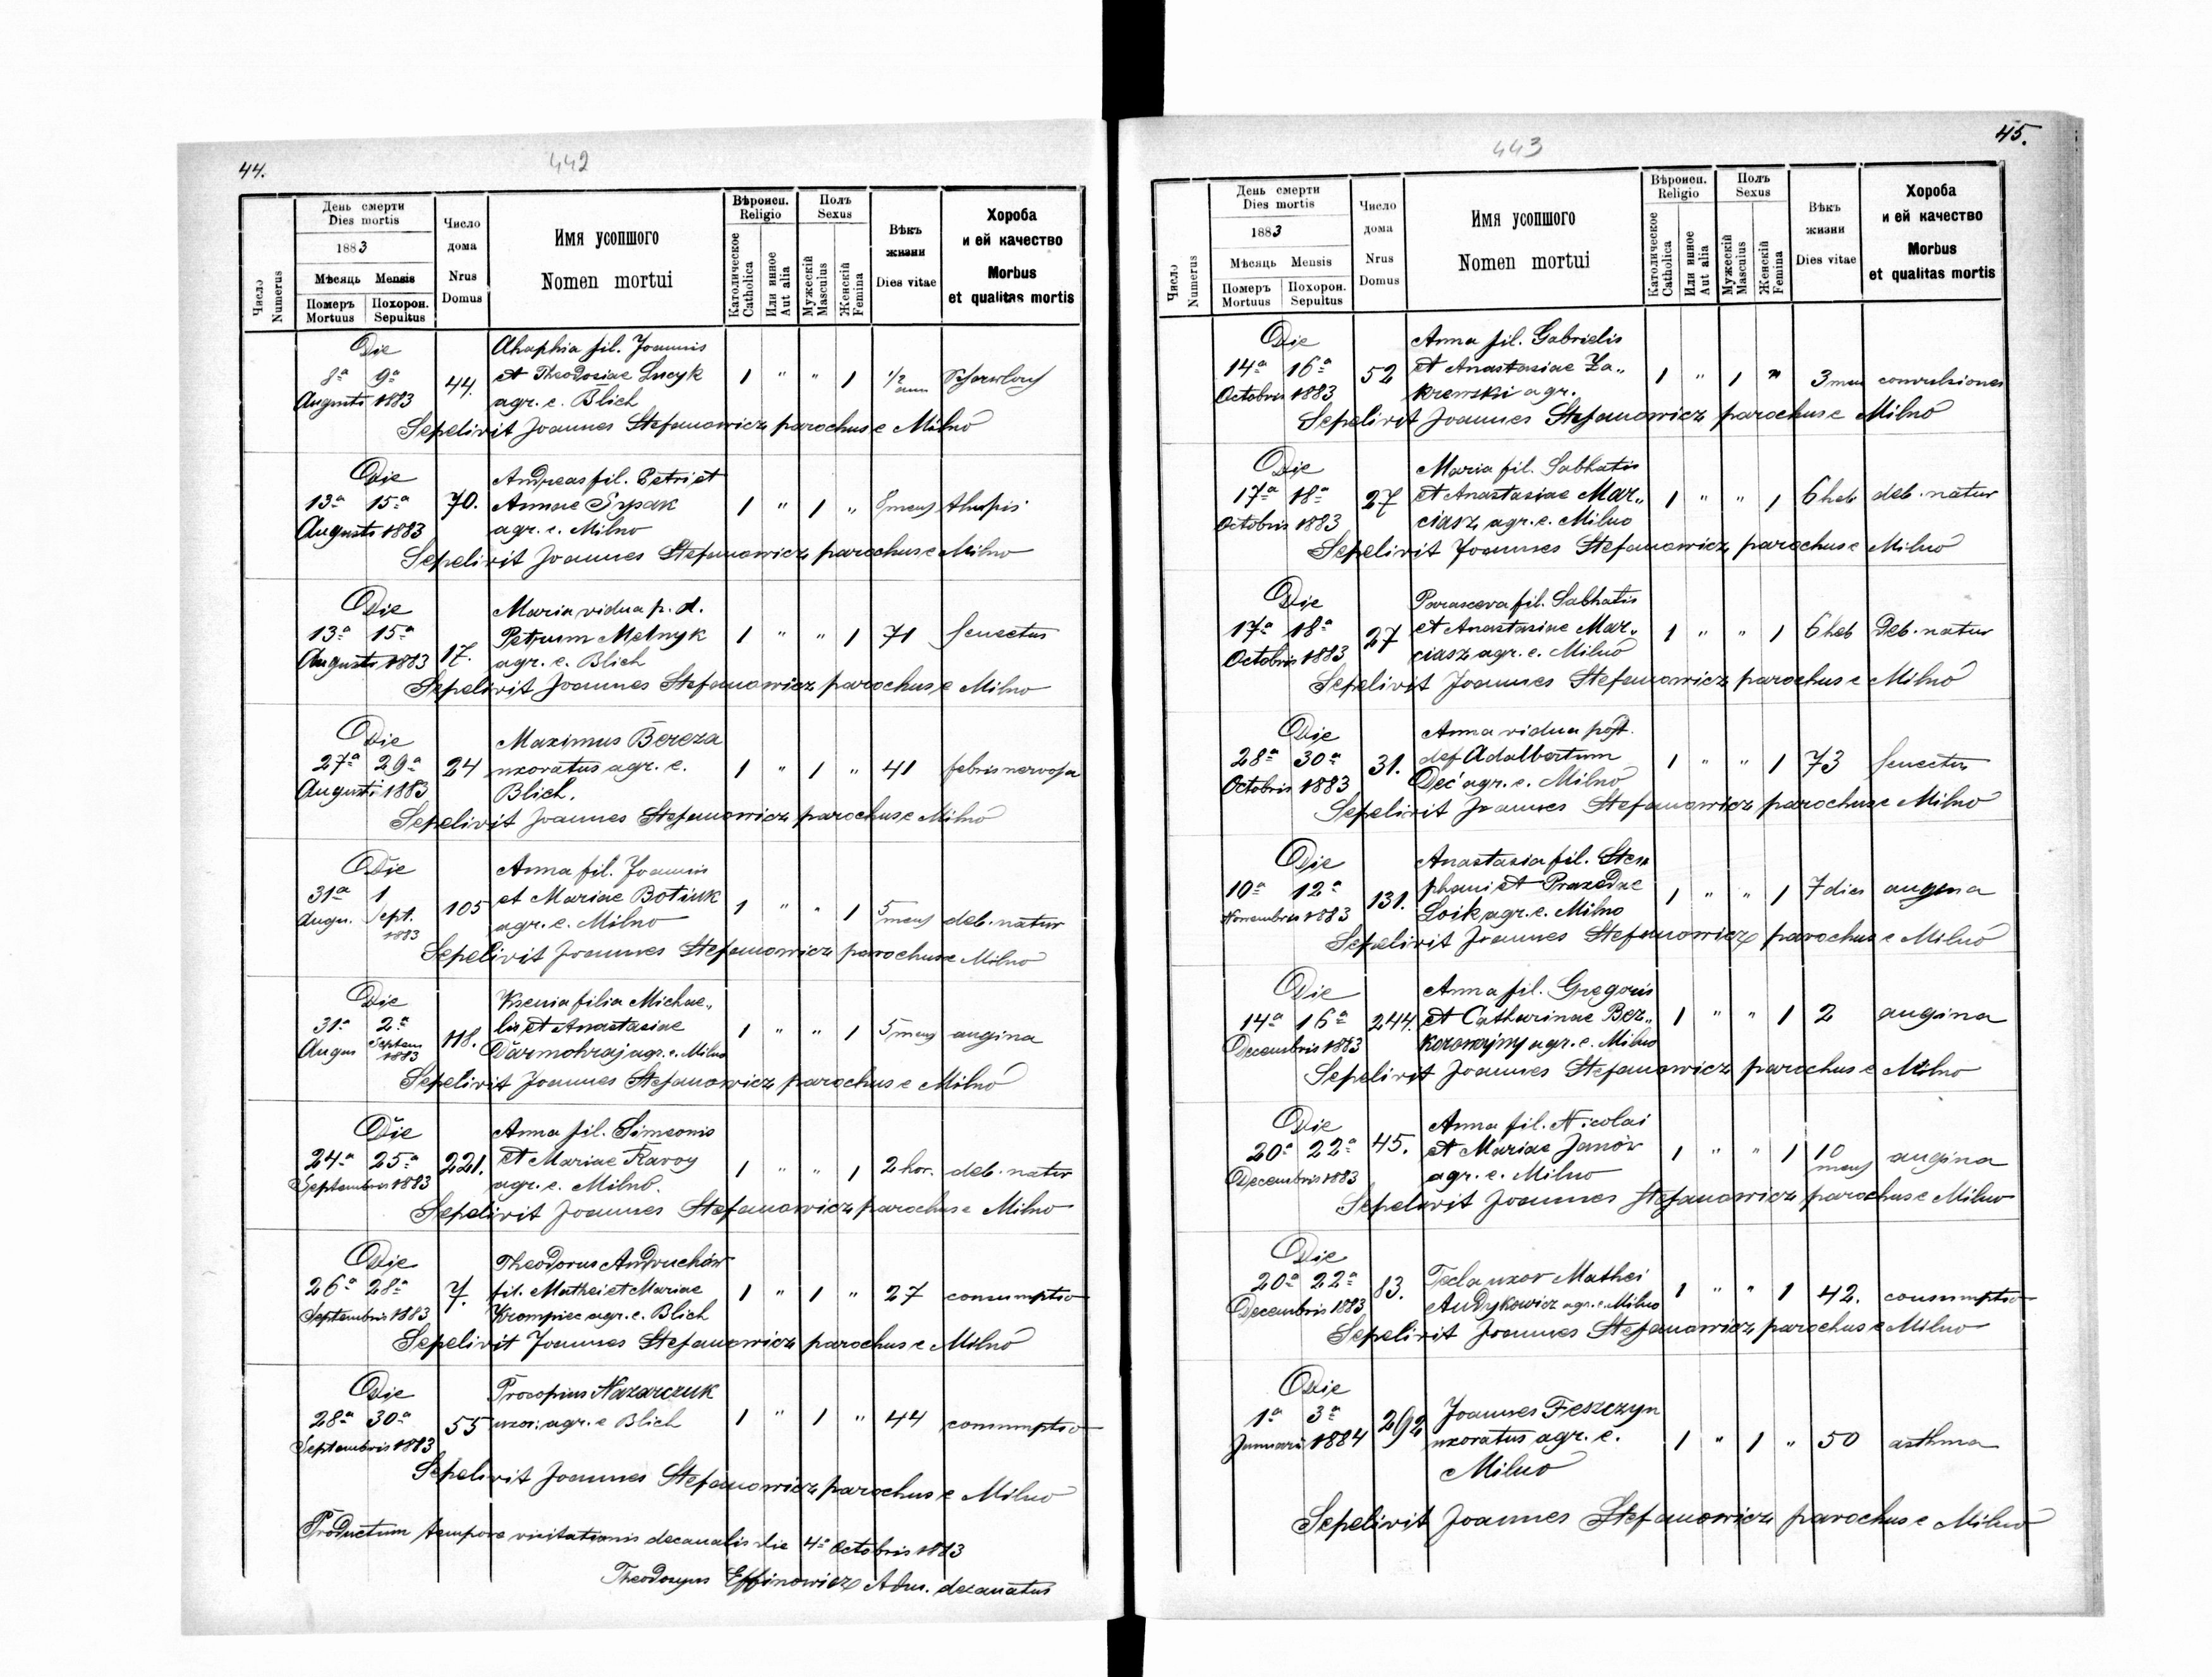 44.
442
Число Numerus
День смерти
Dies mortis
1883
Мѣсяць Mensis
Померъ Mortuus
Похорон. Sepultus
Число дома
Nrus Domus
Имя усопшого
Nomen mortui
Вѣроисп. Religio
Католическое Catholica
Или инное Aut alia
Полъ Sexus
Мужескій Masculus
Женскій Femina
Вѣкъ жизни
Dies vitae
Хороба и ей качество
Morbus et qualitas mortis
Die Ahaphia fil. Joannis
8ª 9ª 44. et Theodosiae Lucyk 1 " " 1 ½ ann
Augusti 1883 agr. e. Blich
Sepelivit Joannes Stefanowicz parochus e Milno
Die Andreas fil. Petri et
13ª 15ª 70. Annae Sypak 1 " 1 " 8 mens
Augusti 1883 agr. e. Milno
Sepelivit Joannes Stefanowicz parochus e Milno
Die Maria vidua p. d.
13ª 15ª 17. Petrum Melnyk 1 " " 1 71 senectus
Augusti 1883 agr. e. Blich
Sepelivit Joannes Stefanowicz parochus e Milno
Die Maximus Bereza
27ª 29ª 24 uxoratus agr. e. 1 " 1 " 41 febris nervosa
Augusti 1883 Blich.
Sepelivit Joannes Stefanowicz parochus e Milno
Die Anna fil. Joannis
31ª 1 105 et Mariae Botiuk 1 " " 1 5 mens deb. natur
Augu. Sept. 1883 agr. e. Milno
Sepelivit Joannes Stefanowicz parochus e Milno
Die Ksenia filia Michae„
31ª 2ª 118. lis et Anastasiae 1 " " 1 5 mens angina
Augus Septem 1883 Darmohraj agr. e. Milno
Sepelivit Joannes Stefanowicz parochus e Milno
Die Anna fil. Simeonis
24ª 25ª 221. et Mariae 1 " " 1 2 hor. deb. natur
Septembris 1883 agr. e. Milno.
Sepelivit Joannes Stefanowicz parochus e Milno
Die Theodorus Andruchów
26ª 28ª 7. fil. Mathei et Mariae 1 " 1 " 27 consumptio
Septembris 1883 Krompiec agr. e. Blich
Sepelivit Joannes Stefanowicz parochus e Milno
Die Procopius Nazarczuk
28ª 30ª 55 uxor. agr. e Blich 1 " 1 " 44 consumptio
Septembris 1883
Sepelivit Joannes Stefanowicz parochus e Milno
Productum tempore visitationis decanalis die 4ª Octobris 1883
Theodosyus Effinowicz Adm. decanatus
45.
443
Число Numerus
День смерти
Dies mortis
1883
Мѣсяць Mensis
Померъ Mortuus
Похорон. Sepultus
Число дома
Nrus Domus
Имя усопшого
Nomen mortui
Вѣроисп. Religio
Католическое Catholica
Или инное Aut alia
Полъ Sexus
Мужескій Masculus
Женскій Femina
Вѣкъ жизни
Dies vitae
Хороба и ей качество
Morbus et qualitas mortis
Die Anna fil. Gabrielis
14ª 16ª 52 et Anastasiae Za„ 1 " 1 " 3 men convulsiones
Octobris 1883 krewski agr.
Sepelivit Joannes Stefanowicz parochus e Milno
Die Maria fil. Sabbatis
17ª 18ª 27 et Anastasiae Mar„ 1 " " 1 6 heb deb. natur
Octobris 1883 ciasz agr. e. Milno
Sepelivit Joannes Stefanowicz parochus e Milno
Die Parasceva fil. Sabbatis
17ª 18ª 27 et Anastasiae Mar„ 1 " " 1 6 heb Deb. natur
Octobris 1883 ciasz agr. e. Milno
Sepelivit Joannes Stefanowicz parochus e Milno
Die Anna vidua post.
28ª 30ª 31. def Adalbertum 1 " " 1 73 senectus
Octobris 1883 Deć agr. e. Milno
Sepelivit Joannes Stefanowicz parochus e Milno
Die Anastasia fil. Ste„
10ª 12ª 131. phani et Praxedae 1 " " 1 7 dies angina
Novembris 1883 Loik agr. e. Milno
Sepelivit Joannes Stefanowicz parochus e Milno
Die Anna fil. Gregoris
14ª 16ª 244. et Catharinae Bez„ 1 " " 1 2 angina
Decembris 1883 korowajny agr. e. Milno
Sepelivit Joannes Stefanowicz parochus e Milno
Die Anna fil. Nicolai
20ª 22ª 45. et Mariae Janów 1 " " 1 10 mens angina
Decembris 1883 agr. e. Milno
Sepelivit Joannes Stefanowicz parochus e Milno
Die
20ª 22ª 83. Tecla uxor Mathei 1 " " 1 42. consumptio
Decembris 1883 Andykowicz agr. e. Milno
Sepelivit Joannes Stefanowicz parochus e Milno
Die
1ª 3ª 292 Joannes Feszczyn
Januarii 1884 uxoratus agr. e. 1 " 1 " 50 asthma
Milno
Sepelivit Joannes Stefanowicz parochus e Milno